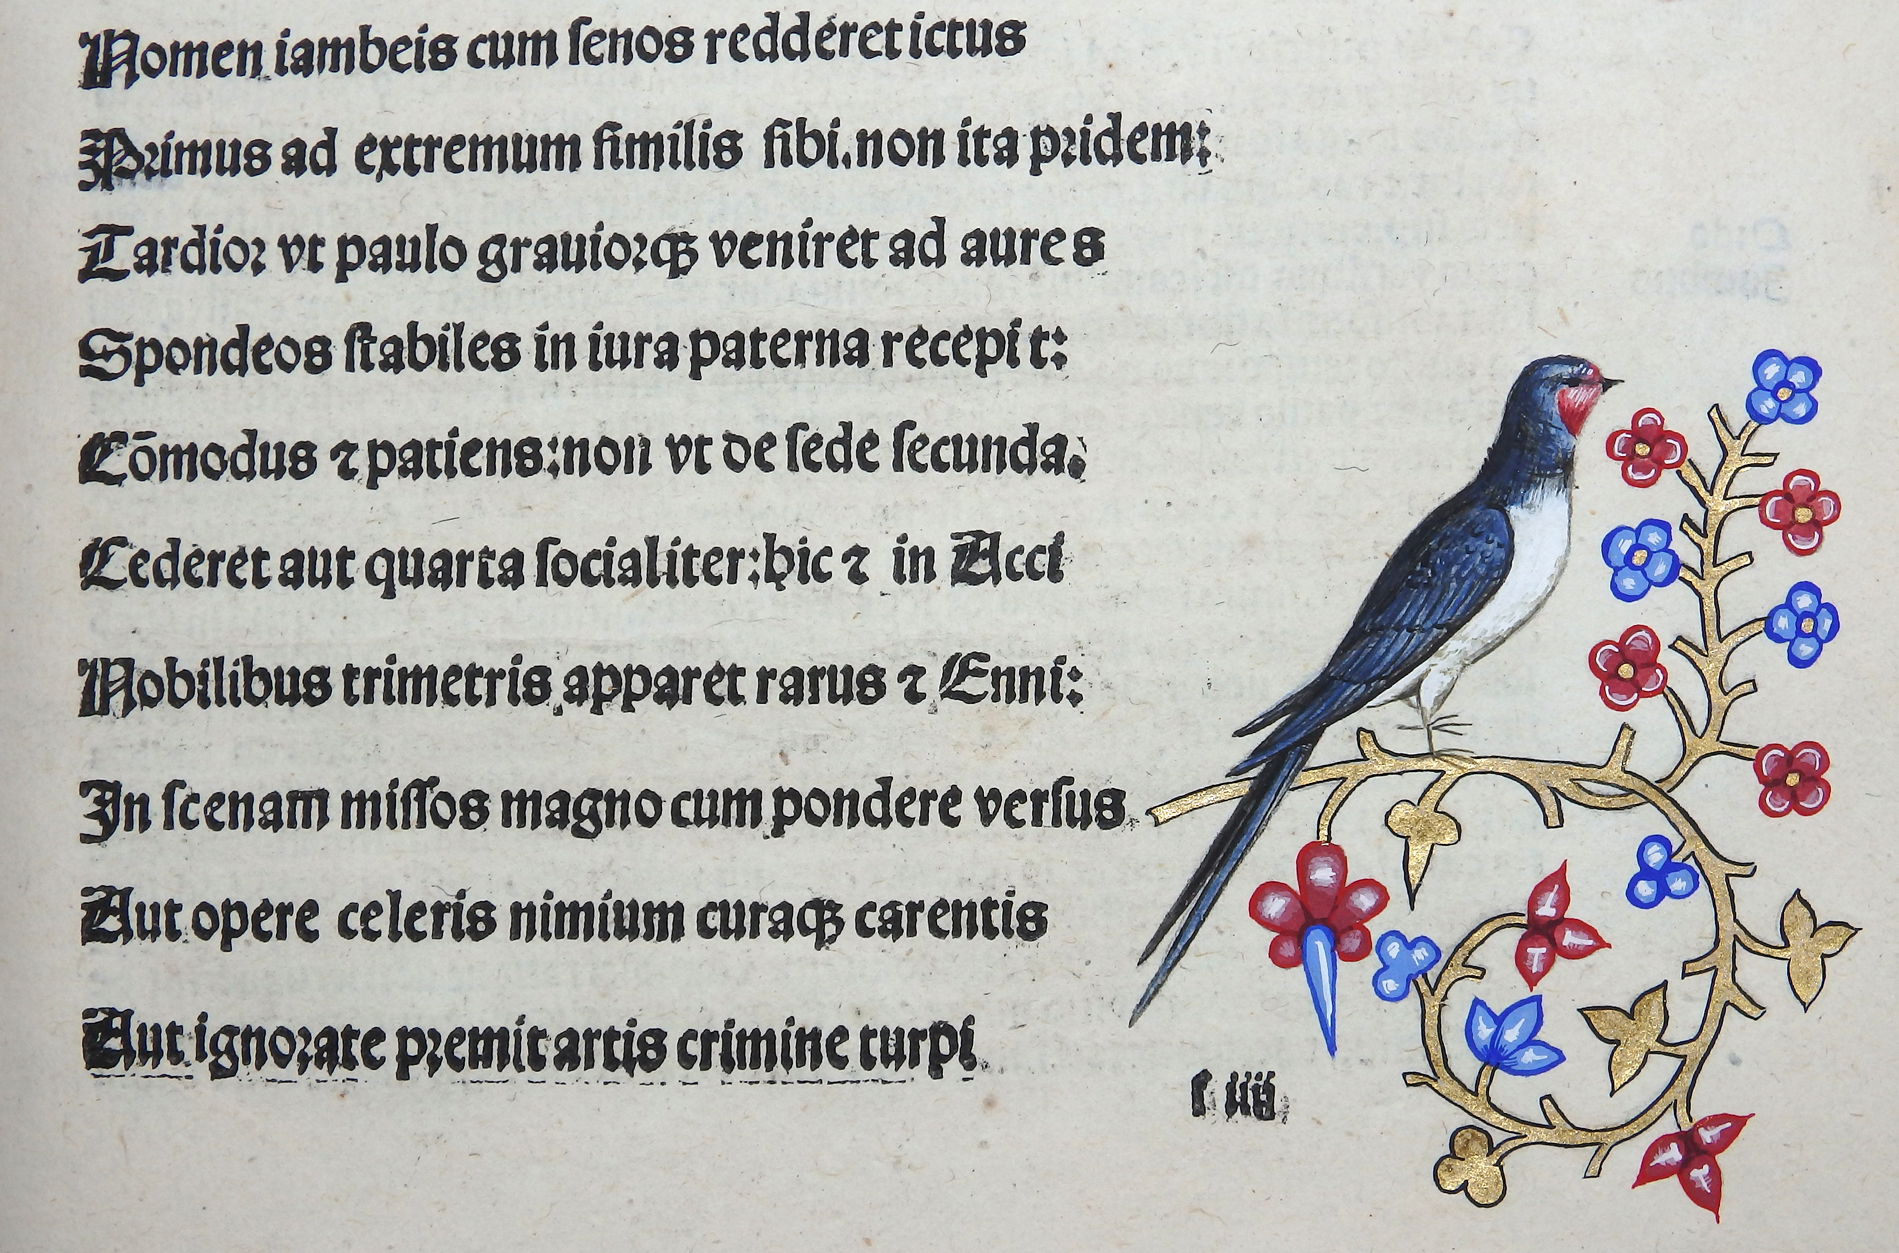 Nomen iambeis cum ſenos redderet ictus
Primus ad extremum ſimilis ſibi.non ita pridem:
Tardior vt paulo grauiorqꝫ veniret ad aures
Spondeos ſtabiles in iura paterna recepit:
Cōmodus ⁊ patiens:non vt de ſede ſecunda.
Cederet aut quarta ſocialiter:hic ⁊ in Acci
Nobilibus trimetris apparet rarus ⁊ Enni:
In ſcenam miſſos magno cum pondere verſus
Aut opere celeris nimium curaqꝫ carentis
Aut ignorate premit artis crimine turpi